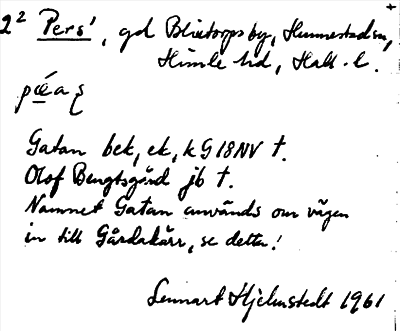 2² Pers', gd Blixtorps by, Hunnestads sn,
Himle hd, Hall. l.
pǽ̱a ș
Gatan bek, ek, k G 18 NV †.
Olof Bengtsgård jb †.
Namnet Gatan används om vägen
in till Gårdakärr, se detta!
Lennart Hjelmstedt 1961